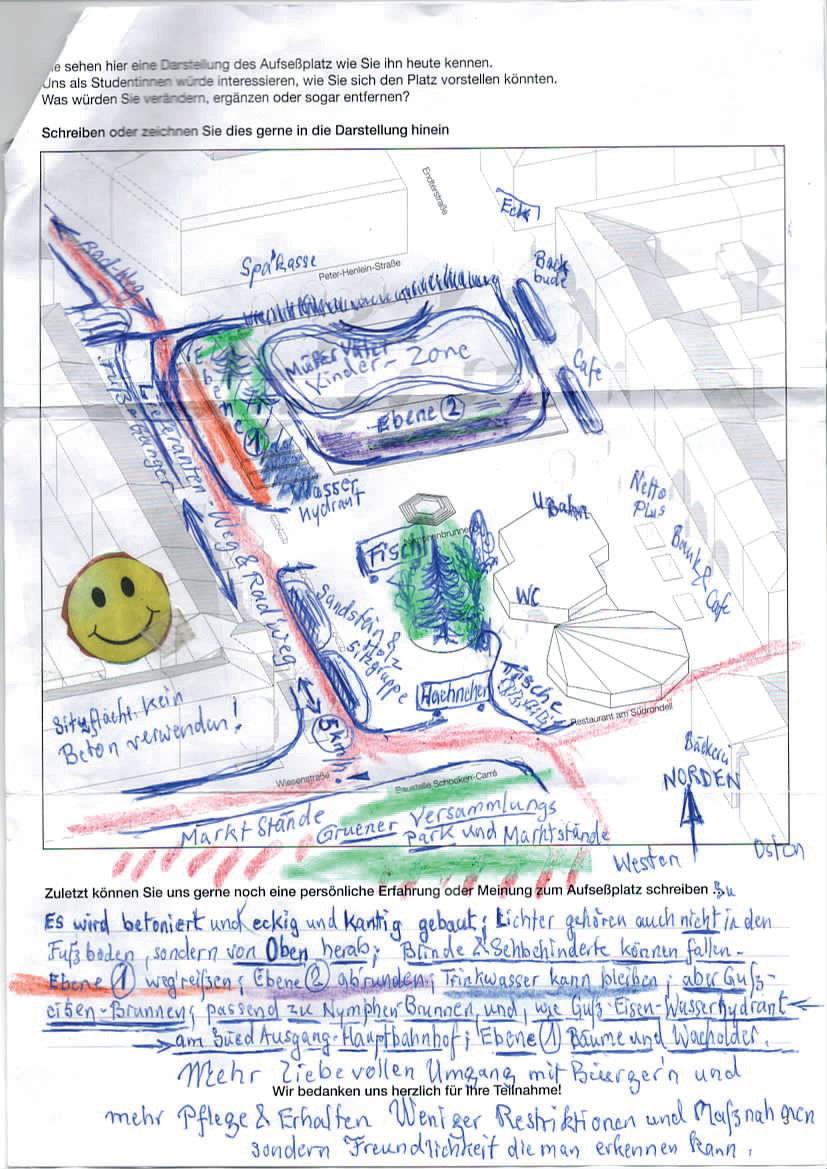 sehen hier eine Darstellung des Aufseßplatz wie Sie ihn heute kennen.
Uns als Studentinnen würde interessieren, wie Sie sich den Platz vorstellen könnten.
Was würden Sie verändern, ergänzen oder sogar entfernen?
Schreiben oder zeichnen Sie dies gerne in die Darstellung hinein
Endterstraße
Eck
Radweg
Sparkasse
Peter-Henlein-Straße
Back
bude
Cafe
Mütter Väter
Kinder-Zone
Ebene 1
Ebene 2
Fußgänger
Lieferanten Weg & Radweg
Wasser
hydrant
Netto
Plus
Bank & Cafe
Ubahn
WC
Nymphenbrunnen
Fischl
Sandstein &
Holz
Sitzgruppe
Haehnchen
Tische
Restaurant am Südrondell
Sitzfläche kein
Beton verwenden!
5 km/h!
Wiesenstraße
Baustelle Schocken-Carré
Bäckerei
NORDEN
Markt Stände
Gruener Versammlungs
Park und Marktstände
Westen
Osten
Zuletzt können Sie uns gerne noch eine persönliche Erfahrung oder Meinung zum Aufseßplatz schreiben
Es wird betoniert und eckig und kantig gebaut; Lichter gehören auch nicht in den
Fußboden, sondern von Oben herab; Blinde & Sehbehinderte können fallen.
Ebene 1 wegreißen; Ebene 2 abrunden; Trinkwasser kann bleiben; aber Guß-
eisen-Brunnen; passend zu Nymphen Brunnen und, wie Guß-Eisen-Wasserhydrant
am Sued Ausgang-Hauptbahnhof; Ebene 1 Bäume und Wacholder.
Mehr Liebevollen Umgang mit Büerger'n und
Wir bedanken uns herzlich für Ihre Teilnahme!
mehr Pflege & Erhalten Weniger Restriktionen und Maßnahmen
sondern Freundlichkeit die man erkennen kann.